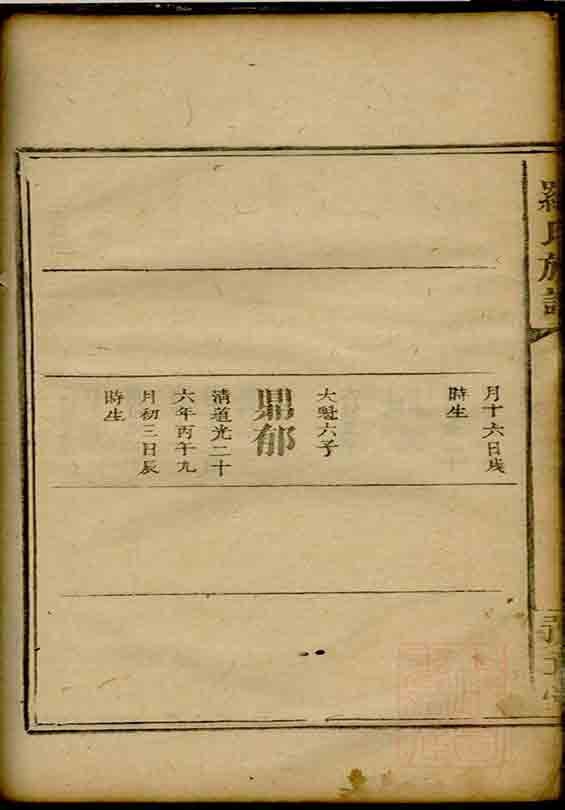 羅氏族譜
月十六日戌
時生
大魁六子
鼎郁
清道光二十
六年丙午九
月初三日辰
時生